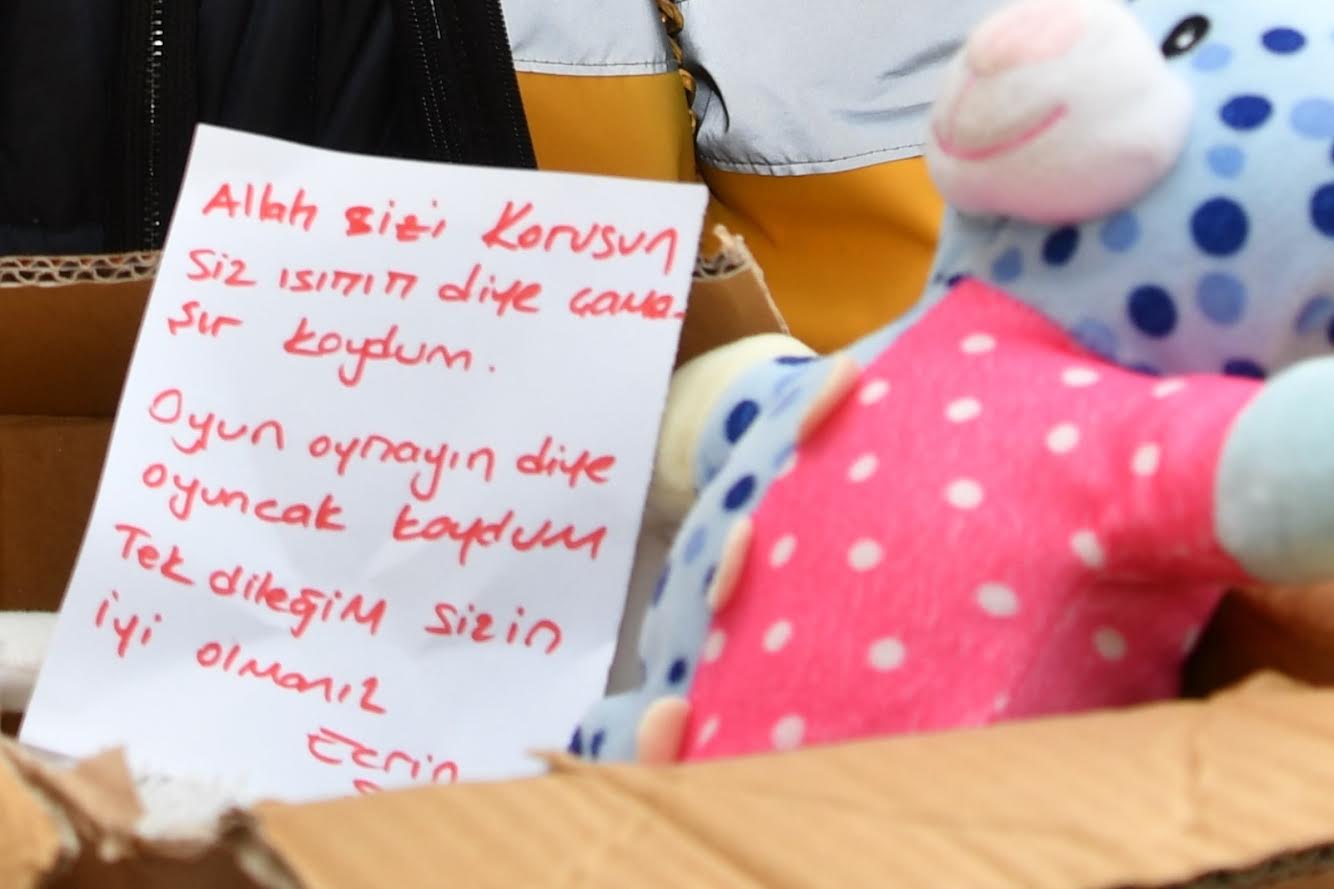 Allah sizi Korusun
Siz ısının diye çama-
şır koydum.
Oyun oynayın diye
oyuncak koydum
Tek dileğim sizin
iyi olmanız
Ecrin